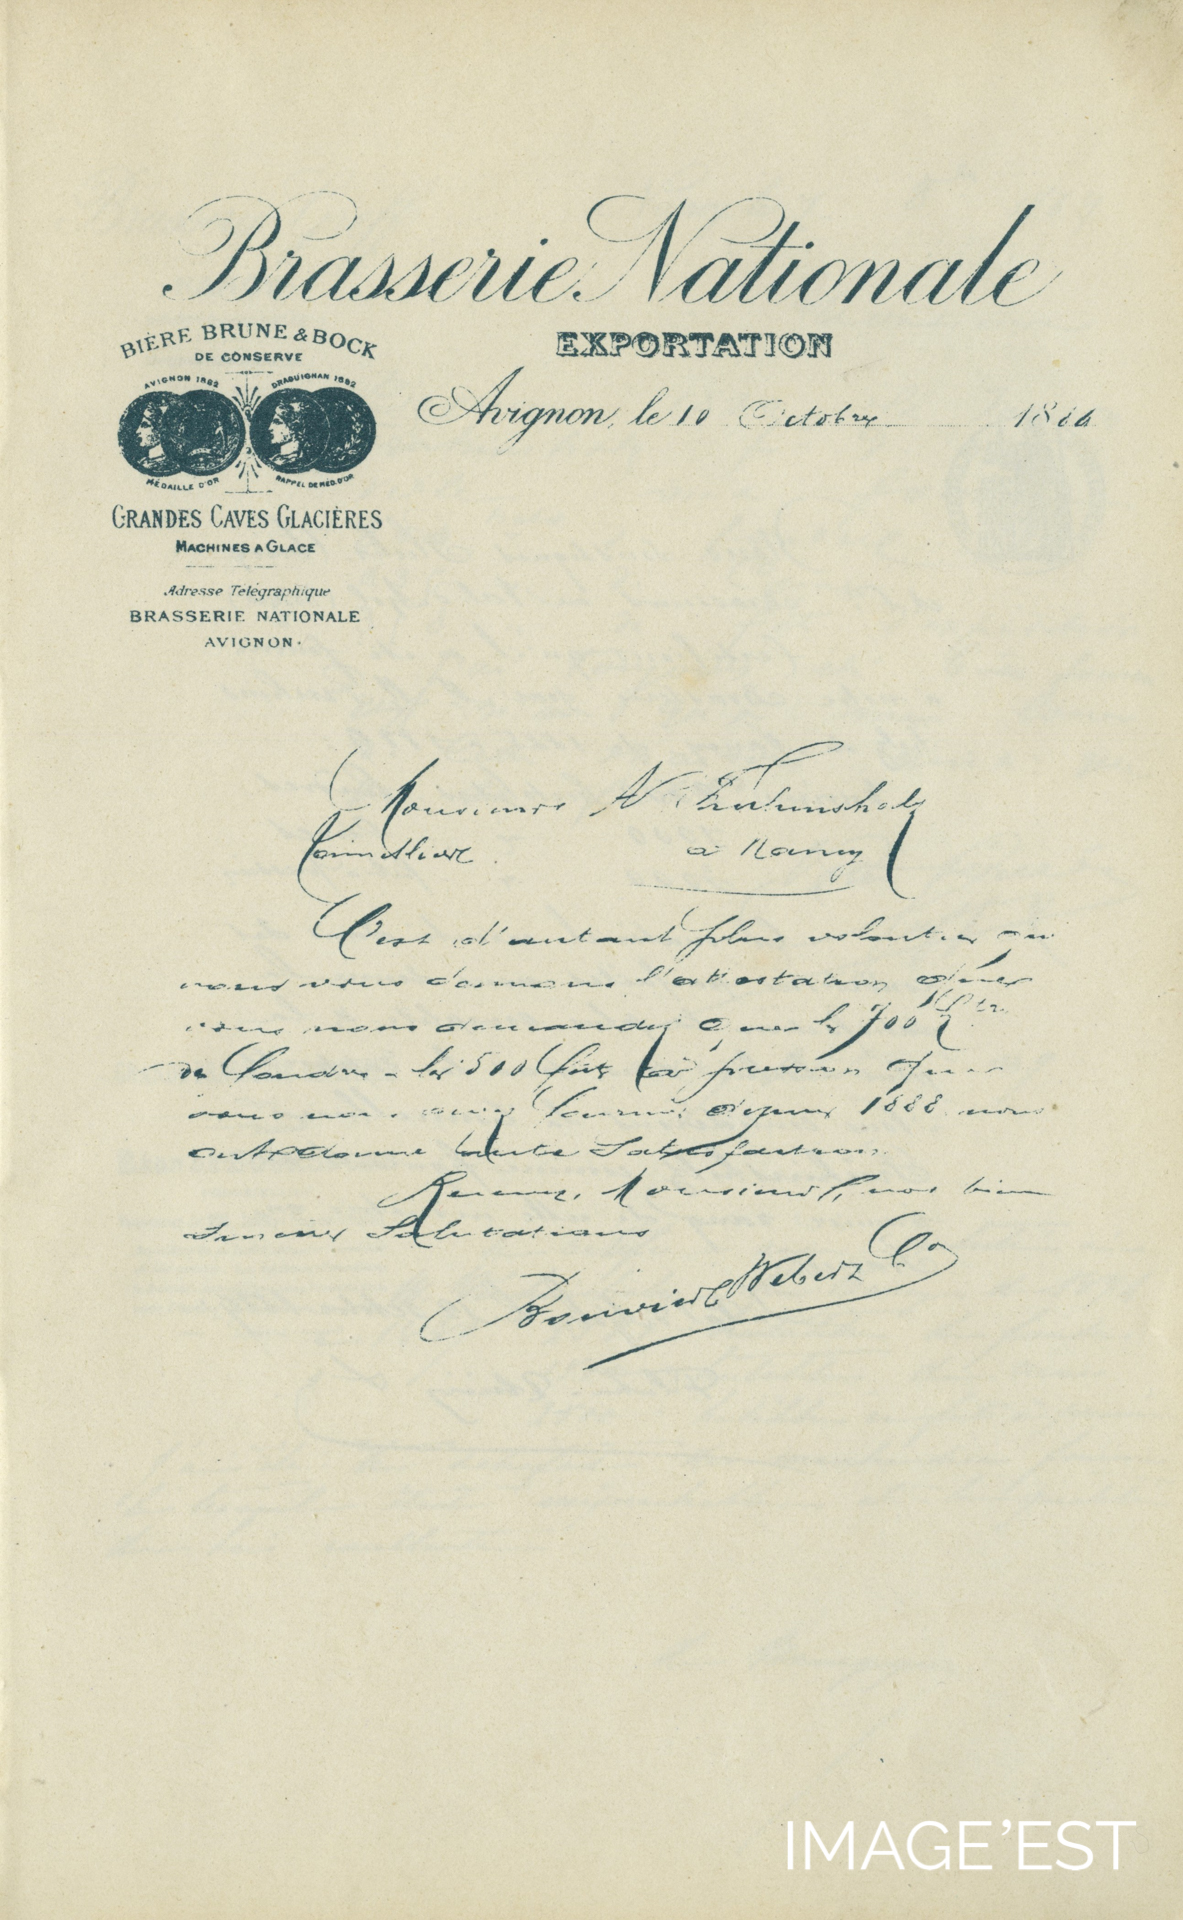 Brasserie Nationale
EXPORTATION
BIÈRE BRUNE & BOCK
DE CONSERVE
AVIGNON 1882
DRAGUIGNAN 1882
MÉDAILLE D'OR
RAPPEL DE MÉD. D'OR
Avignon, le 10 Octobre 18
GRANDES CAVES GLACIÈRES
MACHINES A GLACE
Adresse Télégraphique
BRASSERIE NATIONALE
AVIGNON.
Monsieur A Fruhinsholz
à Nancy
C'est d'autant plus volontiers que
nous vous donnons l'attestation que
vous nous demandez que les 700
de foudres - les 500 fûts à pression que
vous nous avez fournis depuis 1888 nous
ont donné toute satisfaction.
Recevez, Monsieur, nos bien
sincères salutations
Weber & Co
IMAGE'EST